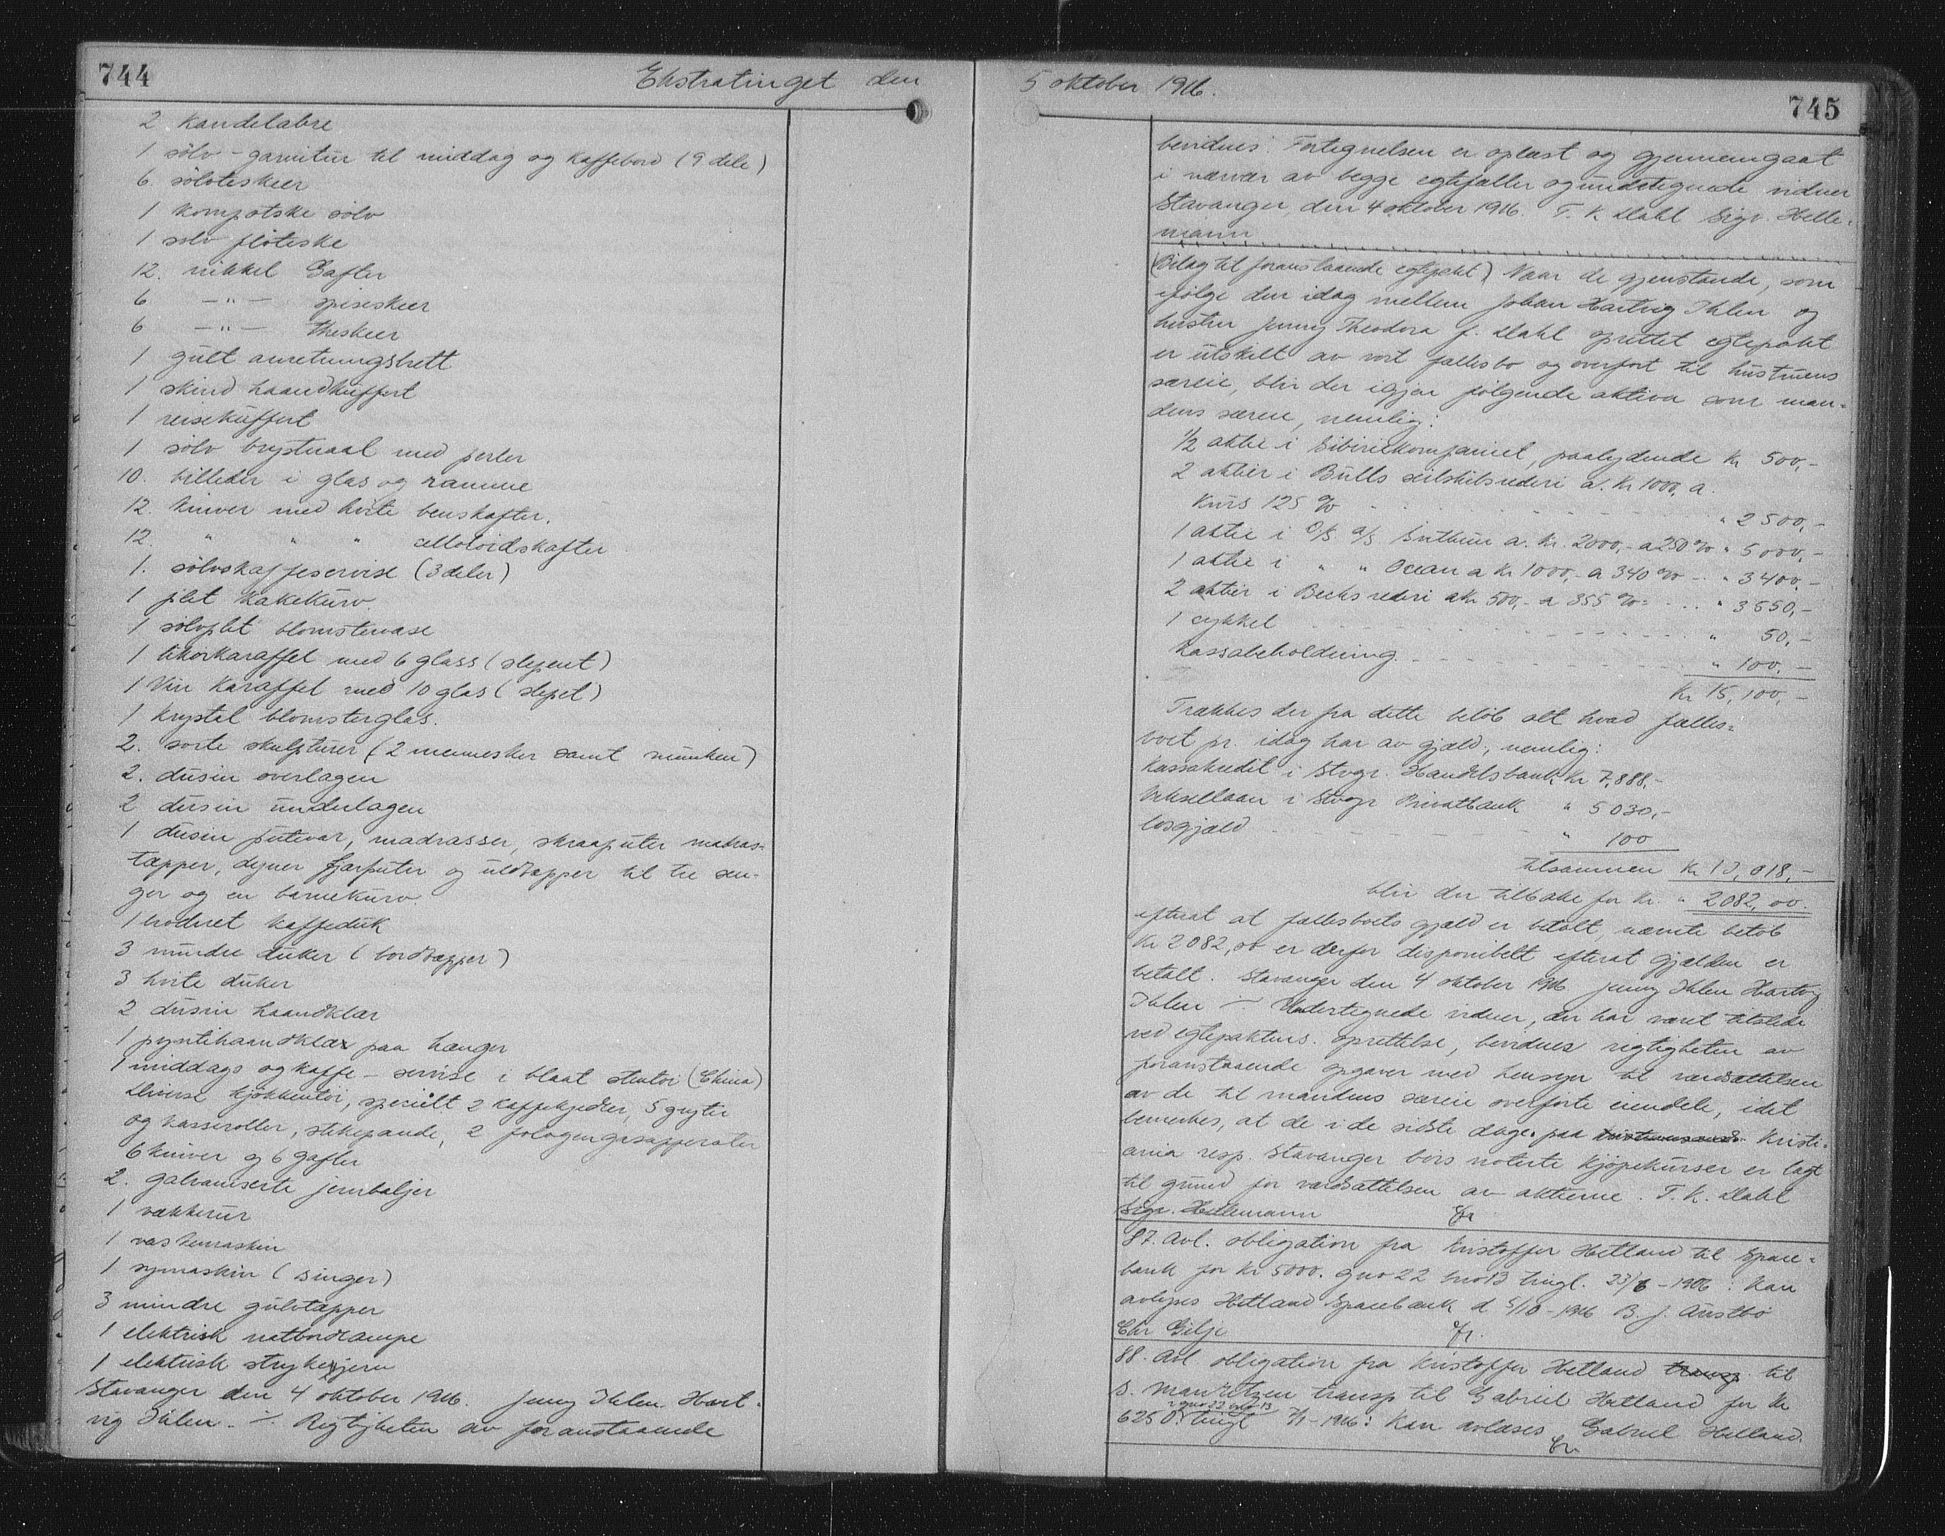 744
Ekstratinget den
2 kandelabre
1 sølv - garnitur til middag og kaffebord (9 dele)
6 sølvteskeer
1 kompotske sølv
1 sølv fløteske
12. nikkel Gafler
6 —"— spiseskeer
6 —"— theskeer
1 gult anretningsbrett
1 skind haandkuffert
1 reisekuffert
1 sølv brystnaal med perler
10. billeder i glas og ramme
12. kniver med hvite benskafter.
12. " " " celloloidskafter
1. sølvskaffeservise (3 deler)
1 plet kakekurv.
1 sølvplet blomstervase
1 likørkaraffel med 6 glass (slepent)
1 Vin Karaffel med 10 glas (slepet)
1 krystal blomsterglas.
2. sorte skulpturer (2 mennesker samt munken)
2. dusin overlagen
2 dusin underlagen
1 dusin putevar, madrasser, skraaputer madras-
tæpper, dyner fjærputer og uldtæpper til tre sen-
ger og en barnekurv.
1 broderet kaffeduk
3 mindre duker (bordtæpper)
3 hvite duker
2 dusin haandklær
1 pyntehaandklæ paa hænger
1 middags og kaffe - servise i blaat stentøi (China)
Diverse kjøkkentøi, specielt 2 kaffekjedler, 5 gryter
og kasseroller, stekepande, 2 fotogengasapperater
6 kniver og 6 gafler
2. galvaniserte jernbaljer
1 vækkerur
1 vaskemaskin
1 symaskin (Singer)
3 mindre gulvtæpper
1 elektrisk natbordlampe
1 elektrisk strykejern
Stavanger den 4 oktober 1916. Jenny Ihlen. Hart-
vig Ihlen. -/- Rigtigheten av foranstaaende
5 oktober 1916.
745
bevidnes. Fortegnelsen er oplæst og gjennemgaat
i nærvær av begge egtefæller og undertegnede vidner
Stavanger, den 4 oktober 1916. T. K. Dahl Sigv. Helle-
mann
(Bilag til foranstaaende egtepakt) Naar de gjenstande, som
ifølge den idag mellem Johan Hartvig Ihlen og
hustru Jenny Theodora f. Dahl oprettet egtepakt
er utskilt av vort fællesbo og overført til hustruens
særeie, blir der igjen følgende aktiva som man-
dens særeie, nemlig:
1/2 aktie i Sibiriekompaniet, paalydende Kr 500,-
2 aktier i Bulls seilskibsrederi a. Kr 1000, a.
Kurs 125 % " 2500,-
1 aktie i D/S A/S Guthun a. Kr. 2000,- a 250 % " 5000,-
1 aktie i " " Ocean a Kr 1000,- a 340 % - " 3400,-
2 aktier i Bechs rederi a Kr 500,- a 355 % " 3550,-
1 cykkel " 50,-
Kassabeholdning " 100,-
Kr 15,100,-
Trækkes der fra dette beløb alt hvad fælles-
boet pr. idag har av gjæld, nemlig:
Kassakredit i Stvgr. Handelsbank Kr 7,888,-
Veksellaan i Stvgr Privatbank " 5030,-
løsgjæld " 100
tilsammen Kr 13,018,-
blir der tilbake for Kr. " 2082,00.
efterat at fællesboets gjæld er betalt, nævnte beløb
Kr 2082,00 er derfor disponibelt efterat gjælden er
betalt. Stavanger den 4 oktober 1916 Jenny Ihlen Hartvig
Ihlen -/- Undertegnede vidner, der har været tilstede
ved egtepaktens oprettelse, bevidner rigtigheten av
foranstaaende opgaver med hensyn til værdsættelsen
av de til mandens særeie overførte eiendele, idet
bemerkes, at de i de sidste dage paa Kristi-
ania resp. Stavanger børs noterte kjøpekurser er lagt
til grund for værdsættelsen av aktierne. T. K. Dahl
Sigv. Hellemann Gr
87. Avl. obligation fra Kristoffer Hetland til Spare-
bank for Kr 5000. gno 22 bno 13 tingl. 23/6 - 1916: Kan
avlyses Hetland Sparebank d. 5/10 - 1916 B. J. Austbø
Chr Gilje Gr.
88. Avl obligation fra Kristoffer Hetland transp til
S. Mauritzen transp til Gabriel Hetland for Kr
i gno 22 bno 13
6250 tingt 7/1 - 1916: Kan avlæses Gabriel Hetland.
Gr